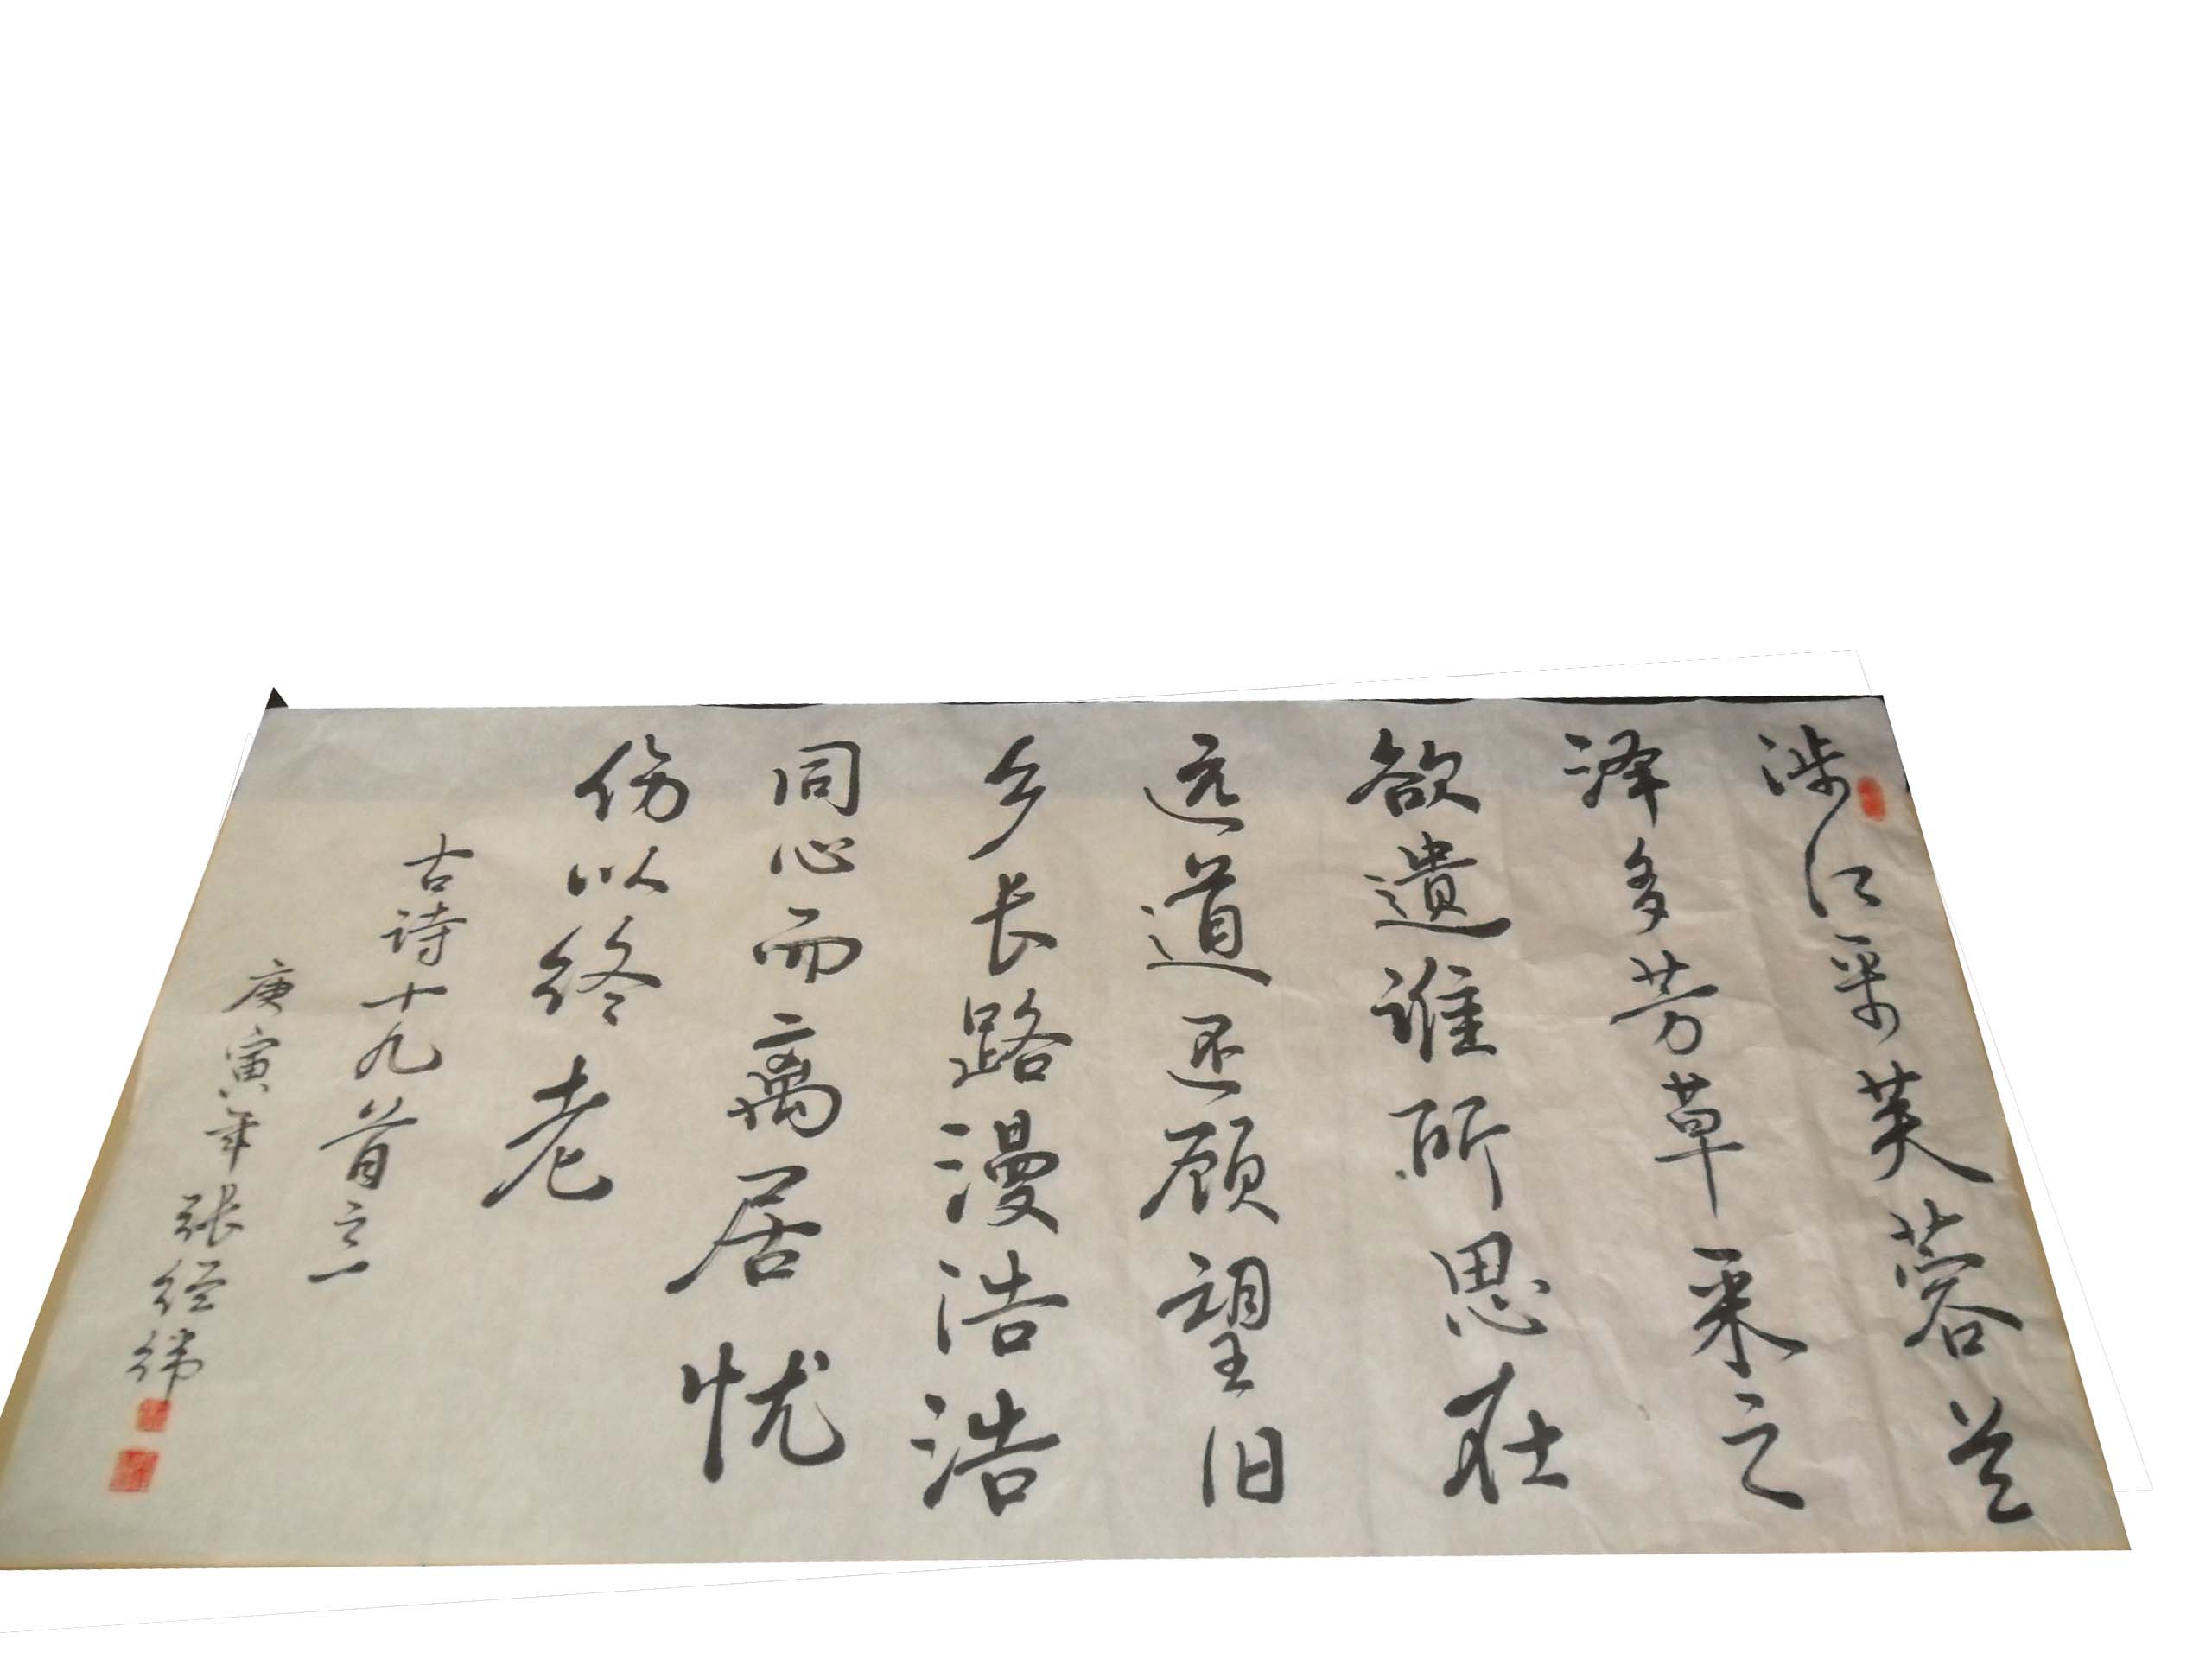 涉江采芙蓉兰
泽多芳草采之
欲遗谁所思在
远道还顾望旧
乡长路漫浩浩
同心而离居忧
伤以终老
古诗十九首之一
庚寅年张经纬